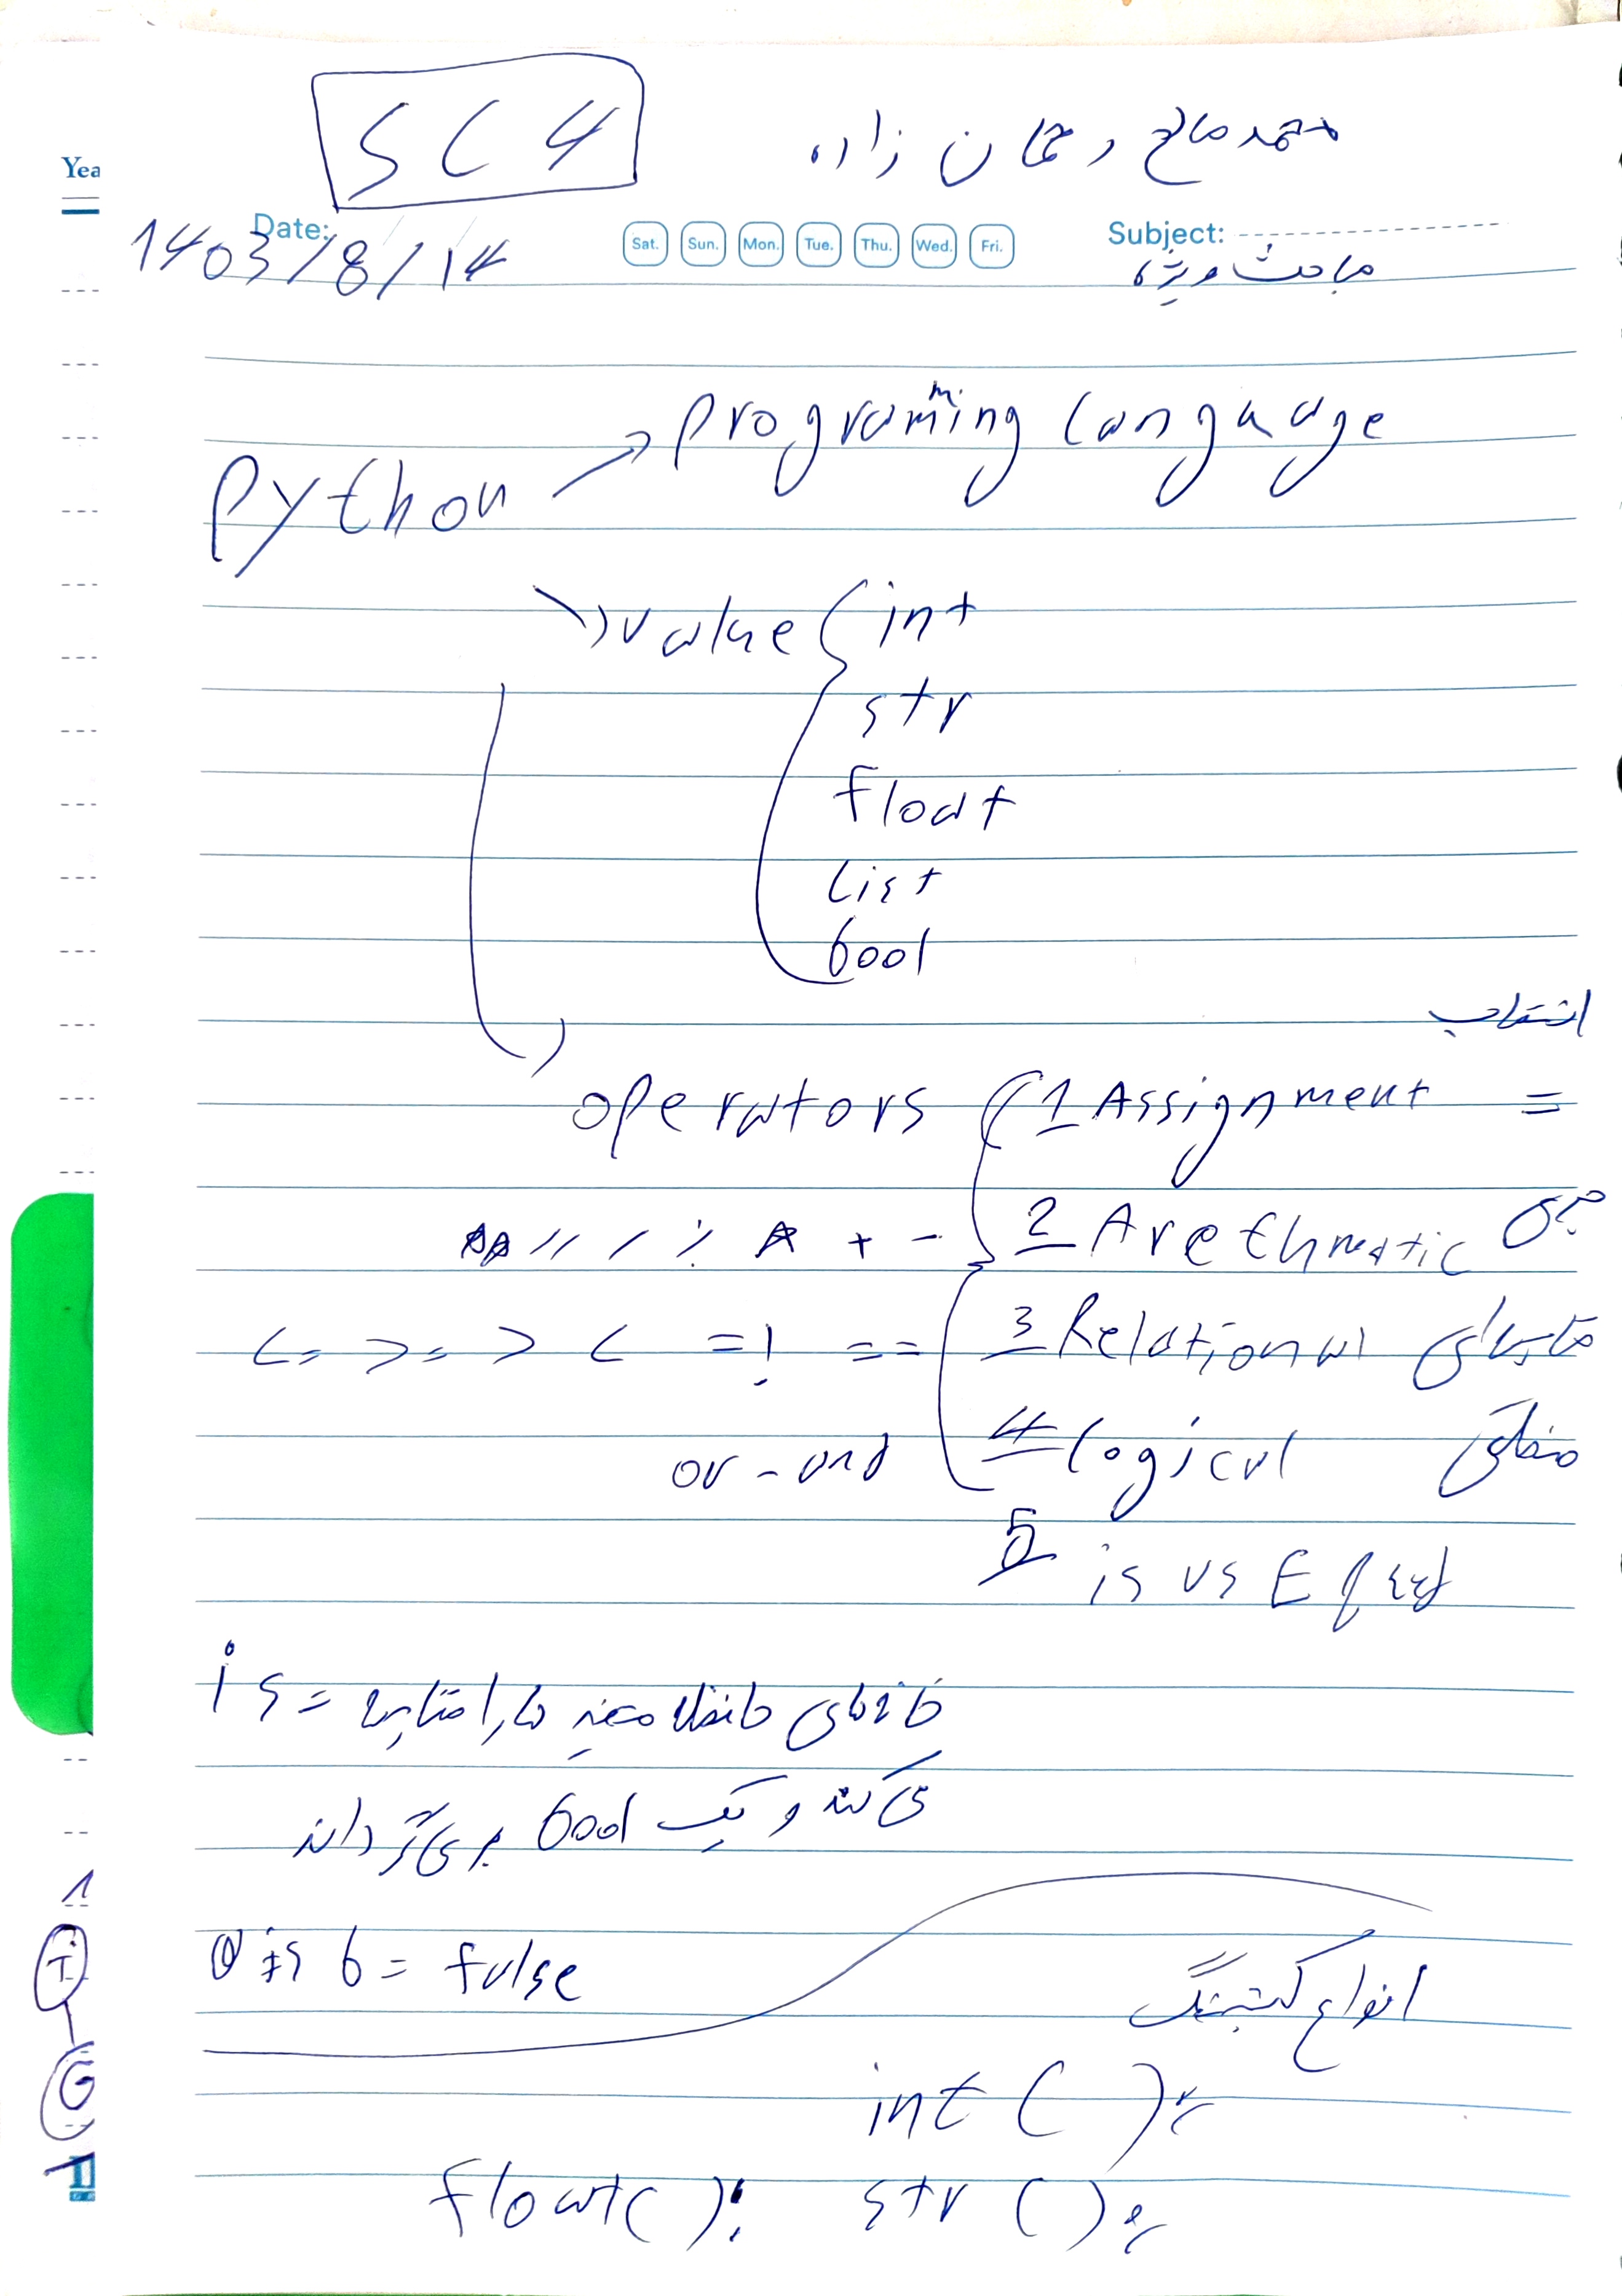 SC4
محمد صالح رحمان زاده
Yea
Date: 1403/8/14
Sat. Sun. Mon. Tue. Thu. Wed. Fri.
Subject: مباحث ویژه
Python → programming language
value { int
str
float
list
bool
انتساب
operators { 1 Assignment =
2 Arethmatic - + * % / // **
3 Relational == =! < > >= <=
منطقی 4 logical or - and
5 is vs Equal
is =
می کند و یک bool بر می گرداند
a is b = false
انواع کستینگ
int ( ):
float( ): str ( ):
1
T
G